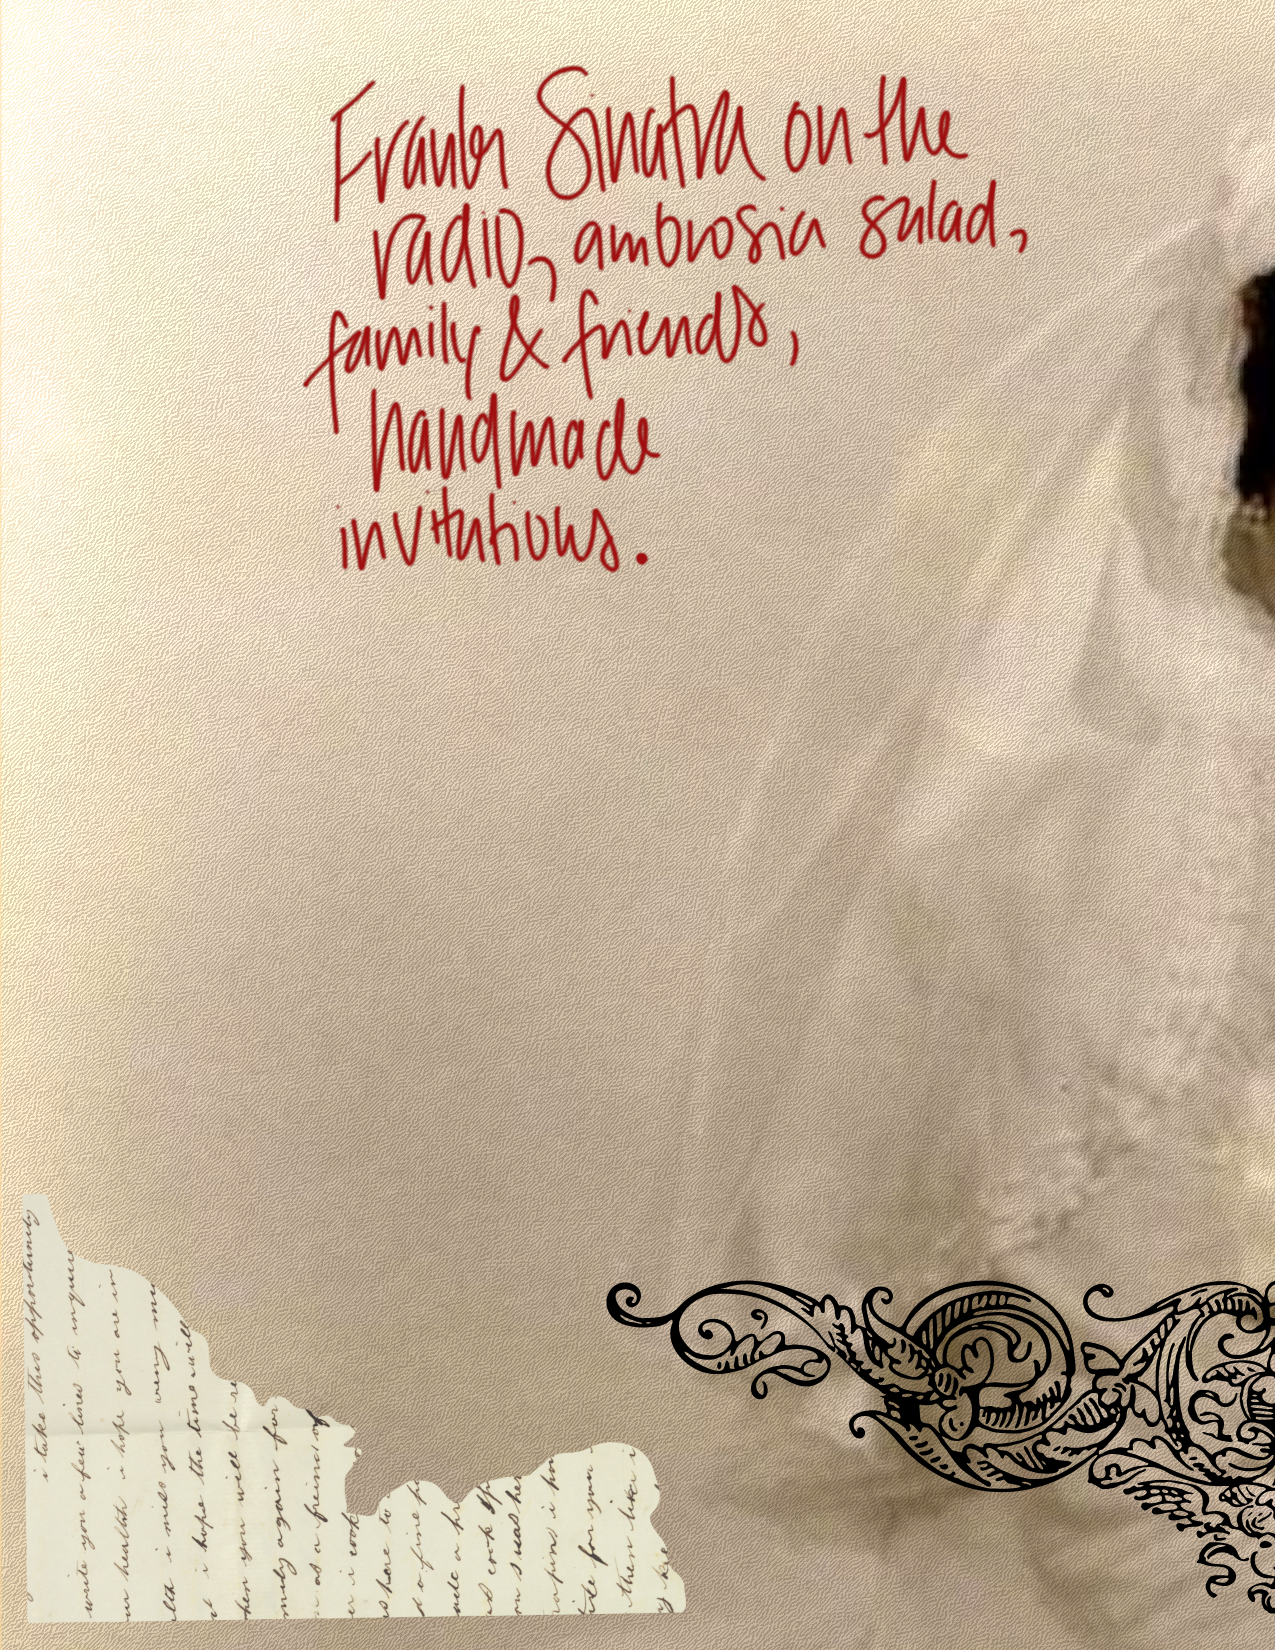 Frank Sinatra on the
radio, ambrosia salad,
family & friends,
handmade
invitations.
i take this opportunity
write you a few lines to inquire
health i hope you are in
i miss you very
i hope the time will
you will be
again for
as a freind of
i
here to
a fine
a
cock
was
i
for your
then